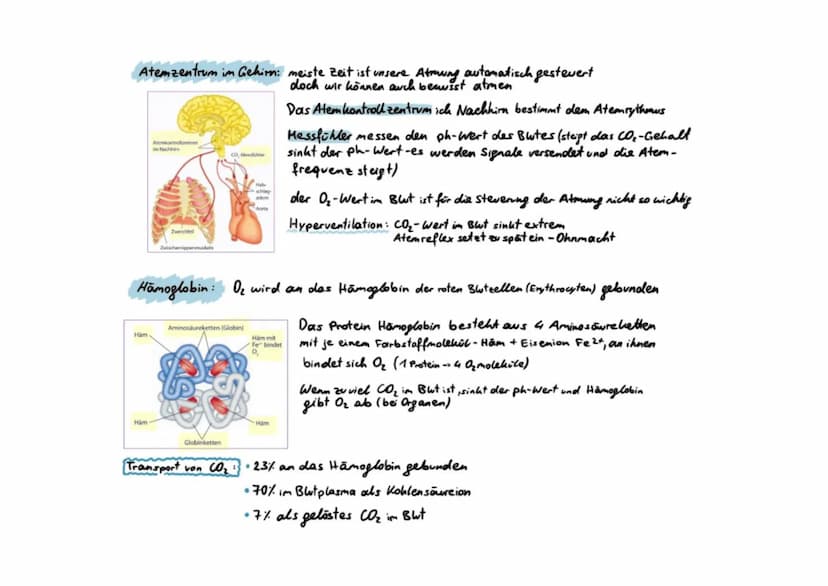 Atemzentrum im Gehirn: meiste Zeit ist unsere Atmung automatisch gesteuert
doch wir können auch bewusst atmen
Das Atemkontrollzentrum ich Nachhirn bestimmt dem Atemrythmus
Messfühler messen den ph-Wert des Blutes (steigt das CO₂-Gehalt
sinkt der ph-Wert-es werden Signale versendet und die Atem-
frequenz steigt)
der O₂-Wert im Blut ist für die Steuerung der Atmung nicht so wichtig
Hyperventilation: CO₂-Wert im Blut sinkt extrem
Atemreflex setzt zu spät ein - Ohnmacht
Atemkontrollzentrum
im Nachhirn
CO₂-Messfühler
Hals-
schlag-
adern
Aorta
Zwerchfell
Zwischenrippenmuskeln
Hämoglobin: O₂ wird an das Hämoglobin der roten Blutzellen (Erythrocyten) gebunden
Aminosäureketten (Globin)
Häm
Häm mit
Fe²⁺ bindet
O₂
Häm
Häm
Globinketten
Das Protein Hämoglobin besteht aus 4 Aminosäureketten
mit je einem Farbstoffmolekül - Häm + Eisenion Fe²⁺, an ihnen
bindet sich O₂ (1 Protein → 4 O₂moleküle)
Wenn zu viel CO₂ im Blut ist, sinkt der ph-Wert und Hämoglobin
gibt O₂ ab (bei Organen)
Transport von CO₂: • 23% an das Hämoglobin gebunden
• 70% im Blutplasma als Kohlensäureion
• 7% als gelöstes CO₂ im Blut